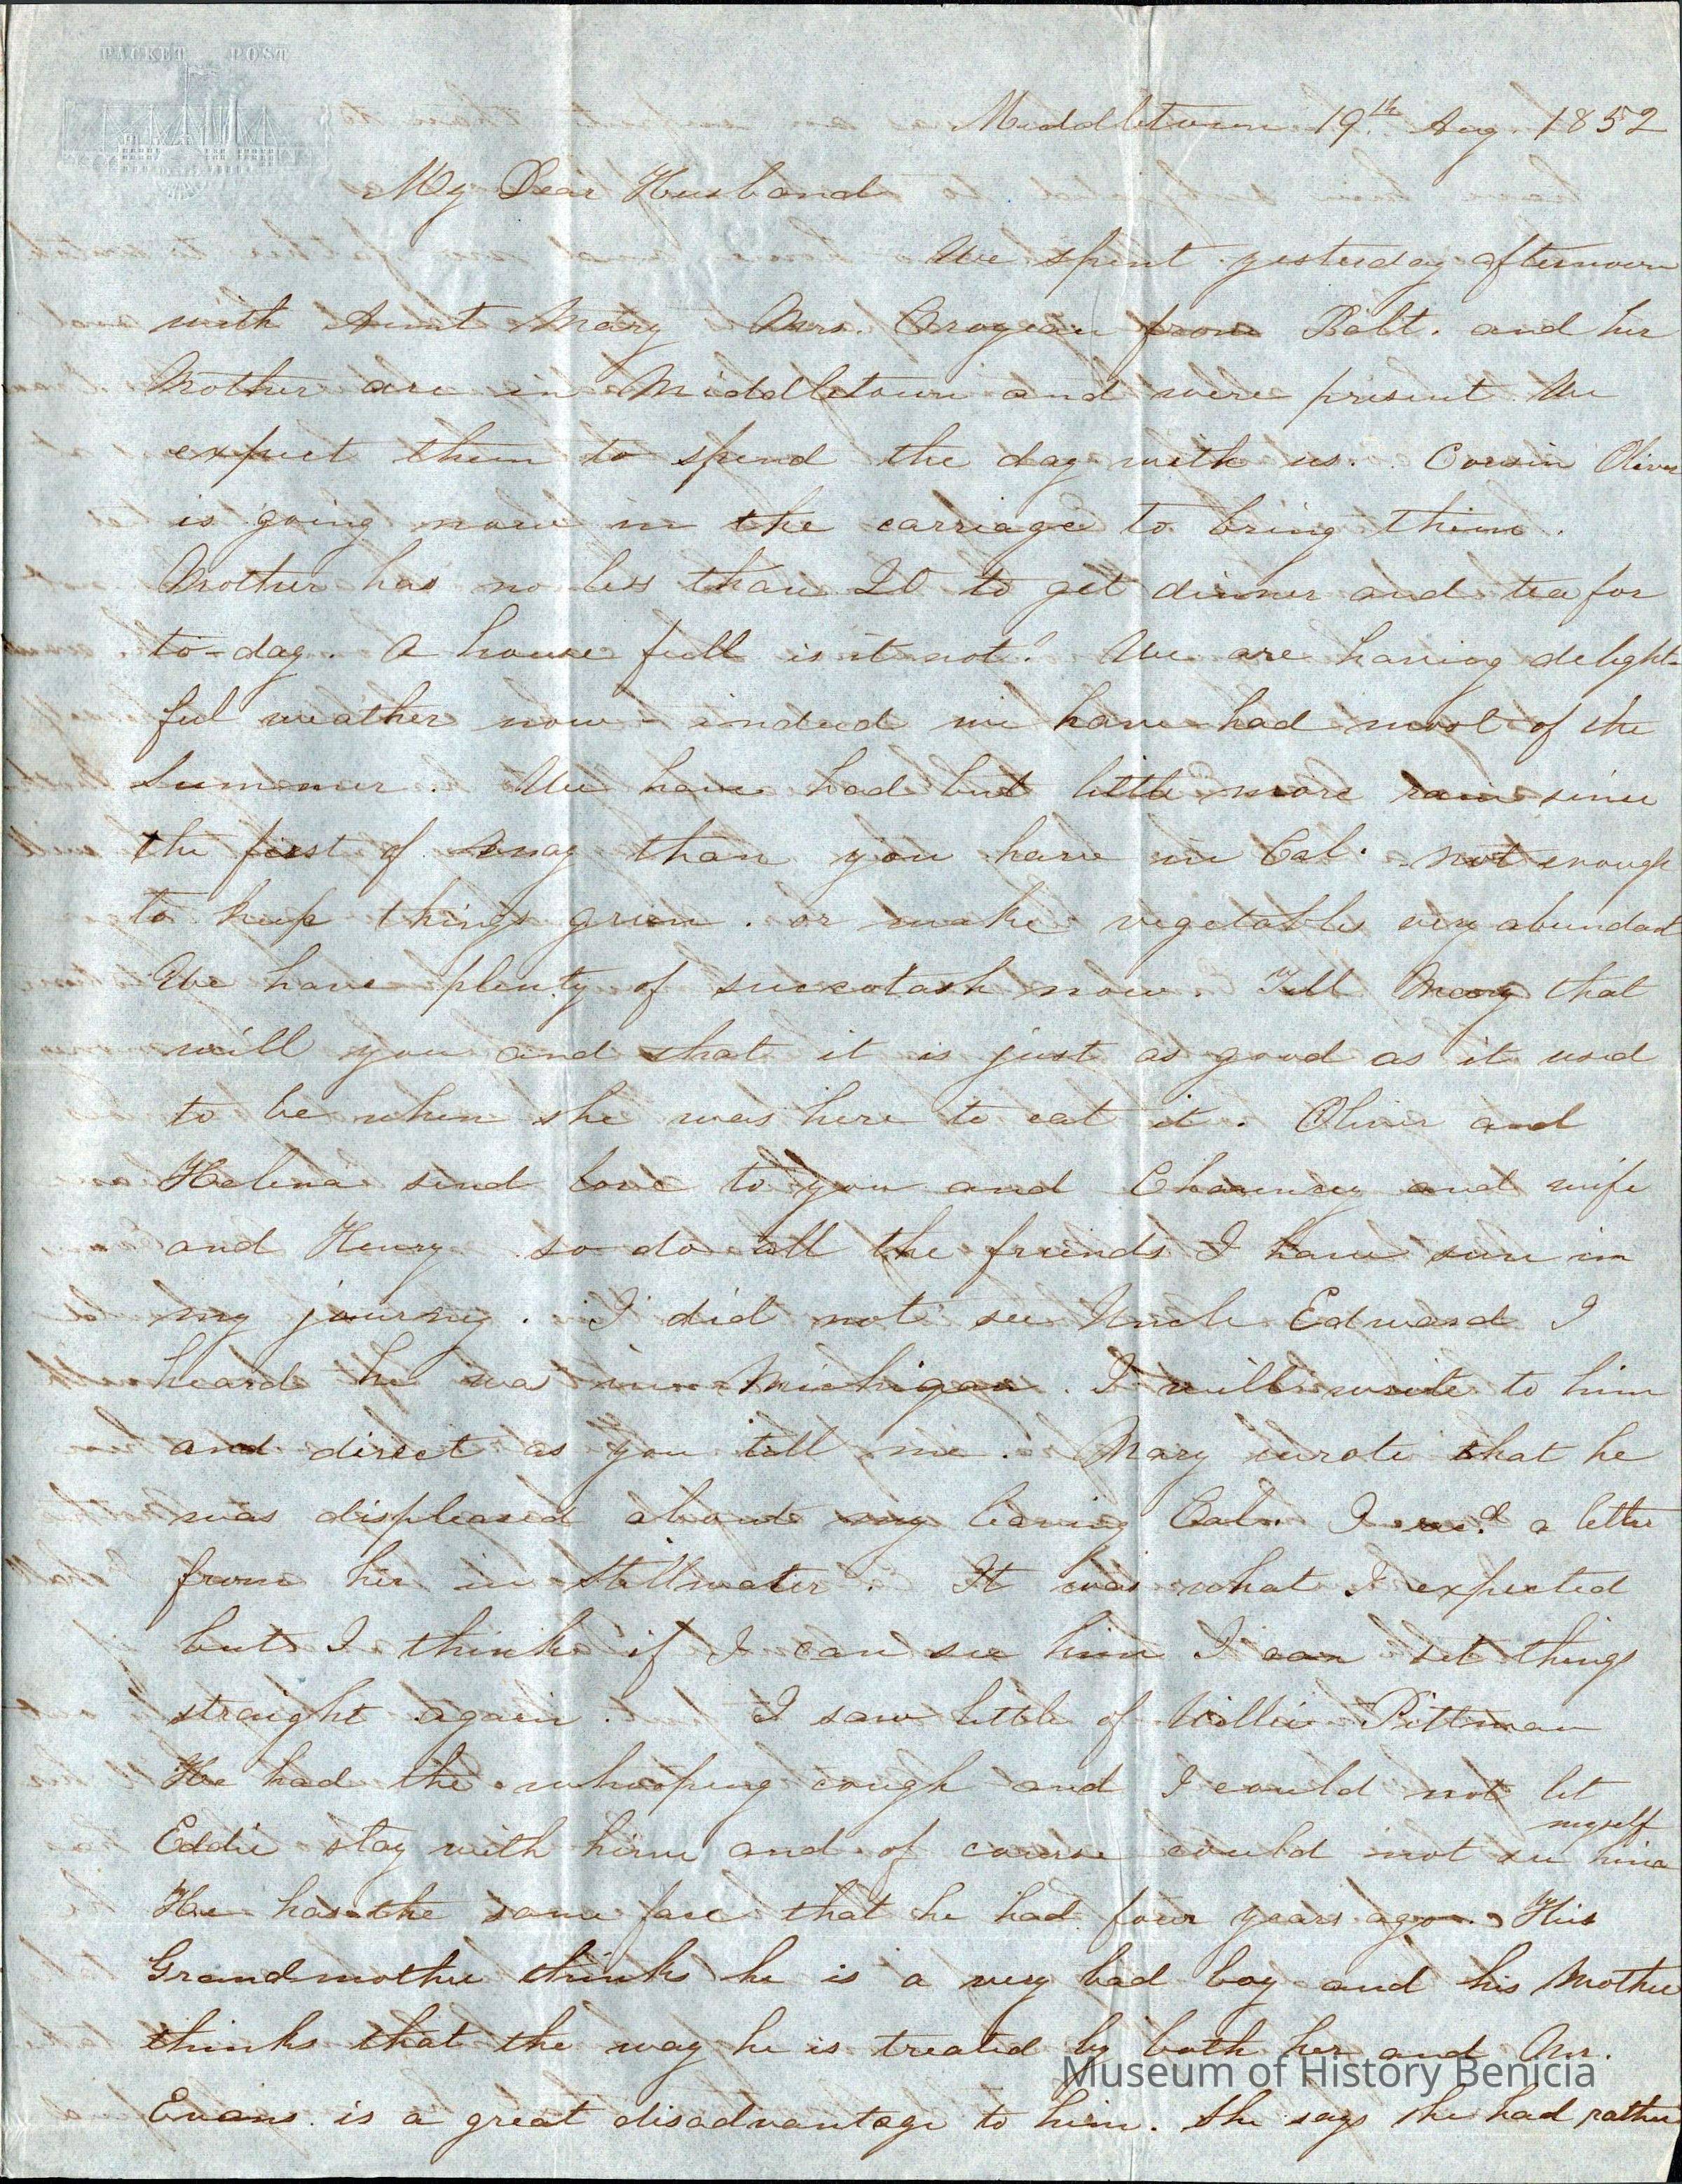 PACKET POST
Middletown 19th Aug. 1852
My Dear Husband
We spent yesterday afternoon
with Aunt Mary Mrs. from Balt. and her
Mother are in Middletown and were present We
expect them to spend the day with us. Cousin Oliver
is going now in the carriage to bring them.
Mother has no less than 20 to get dinner and tea for
to-day. A house full is it not? We are having delight-
ful weather now - indeed we have had most of the
Summer. We have had but little more rain since
the first of May than you have in Cal. not enough
to keep things green. or make vegetables very abundant
We have plenty of succotash now. Tell Mary that
will you and that it is just as good as it used
to be when she was here to eat it. Oliver and
Helena send love to you and Chauncey and wife
and Henry so do all the friends I have seen in
my journey. I did not see Uncle Edward I
heard he wa in Michigan. I will write to him
and direct as you tell me. Mary wrote that he
was displeased about my leaving Cal. I rec.d a letter
from her in Stillwater. It was what I expected
but I think if I can see him I can set things
straight again. I saw little of Willie Pittman
He had the whooping cough and I could not let
Eddie stay with him and of course could not see him myself
He has the same face that he had four years ago. His
Grandmother thinks he is a very bad boy and his Mother
thinks that the way he is treated by both her and Mr.
Evans is a great disadvantage to him. She says she had rather
Museum of History Benicia